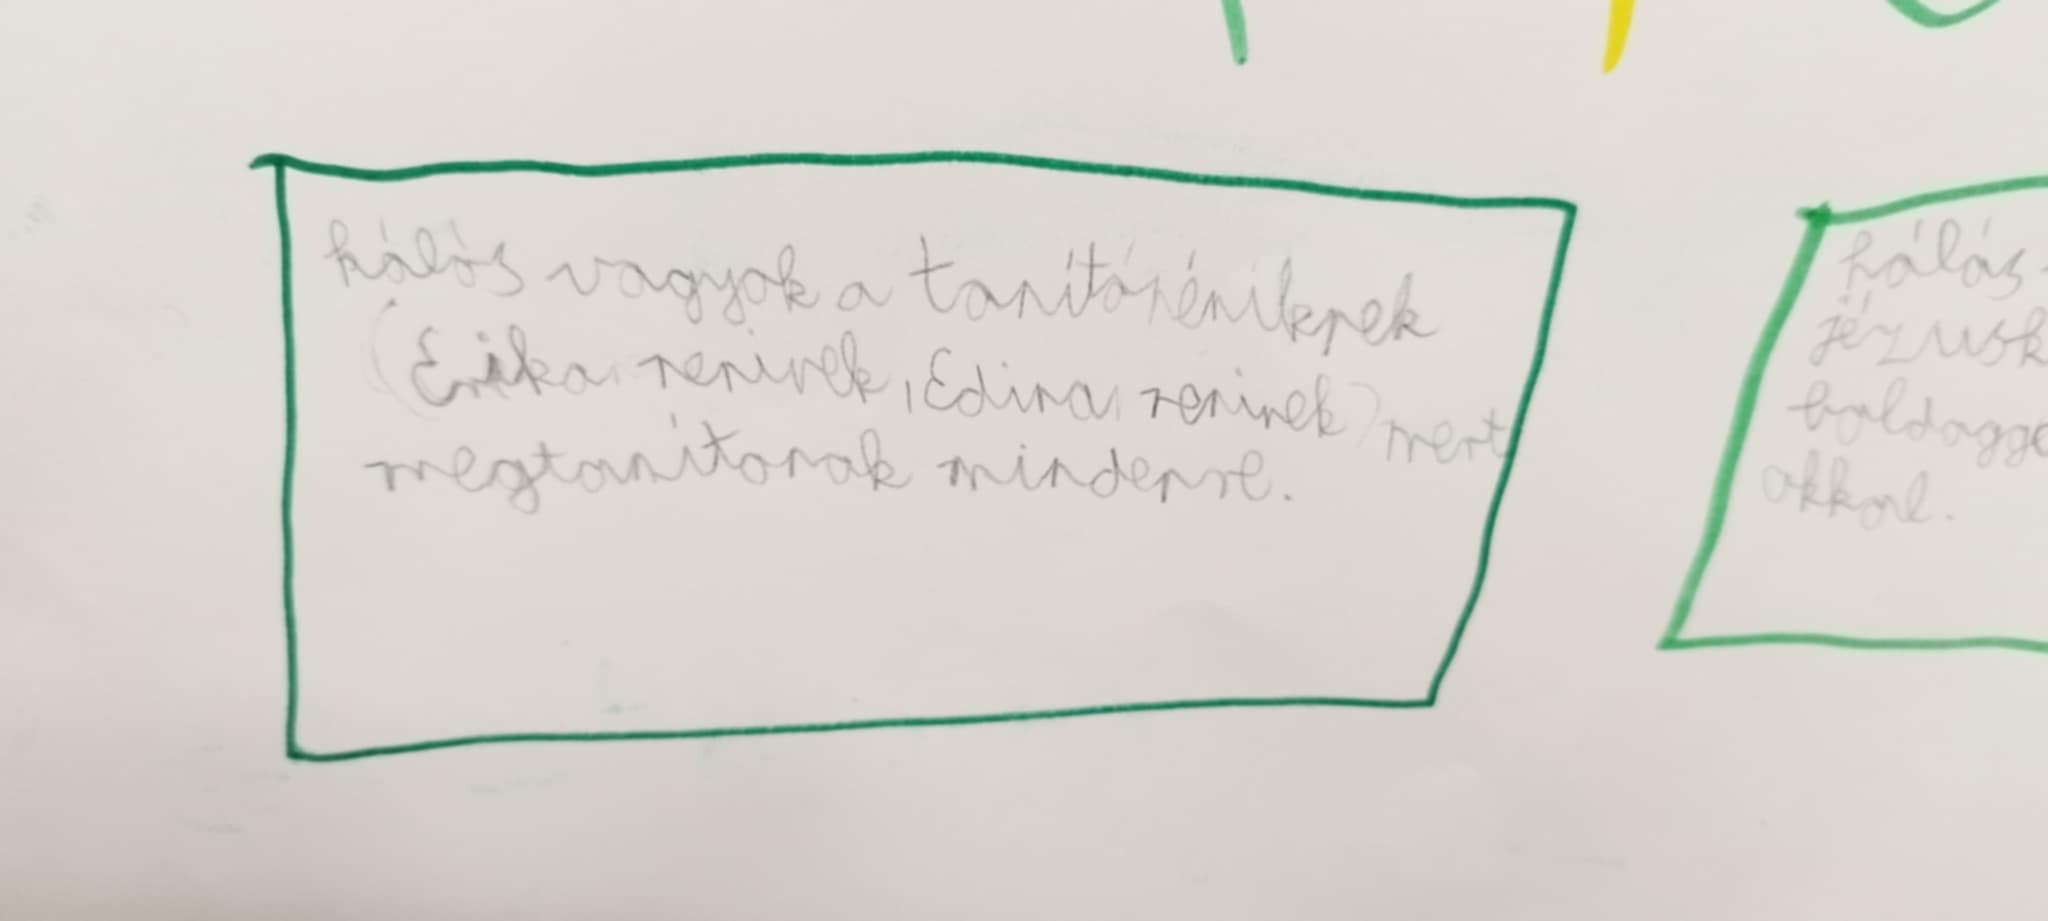 hálás vagyok a tanítónéniknek
(Erika neninek, Edina neninek) mert
megtanítanak mindenre.
hálás
jézusk
boldogg
akkal.